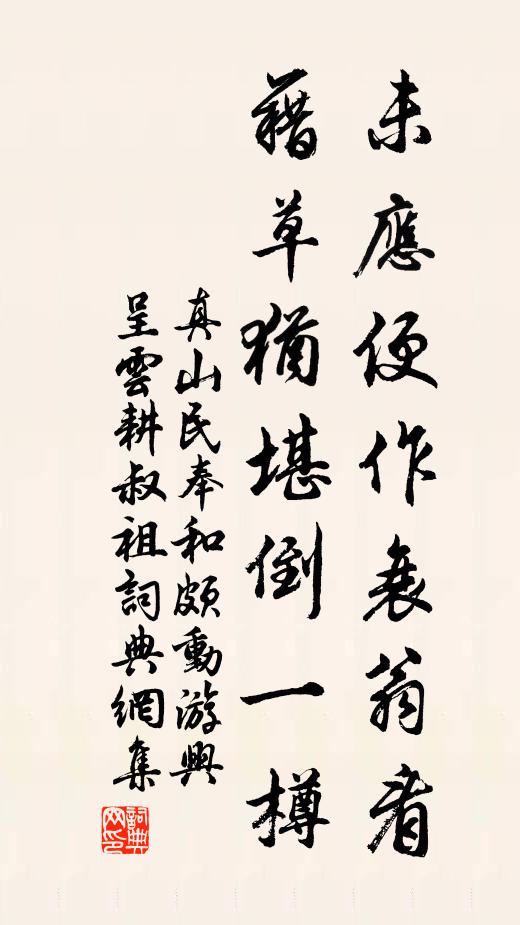 未應便作衰翁看
藉草猶堪倒一樽
真山民奉和頗動游興
呈雲耕叔祖詞典網集
詞典
网印